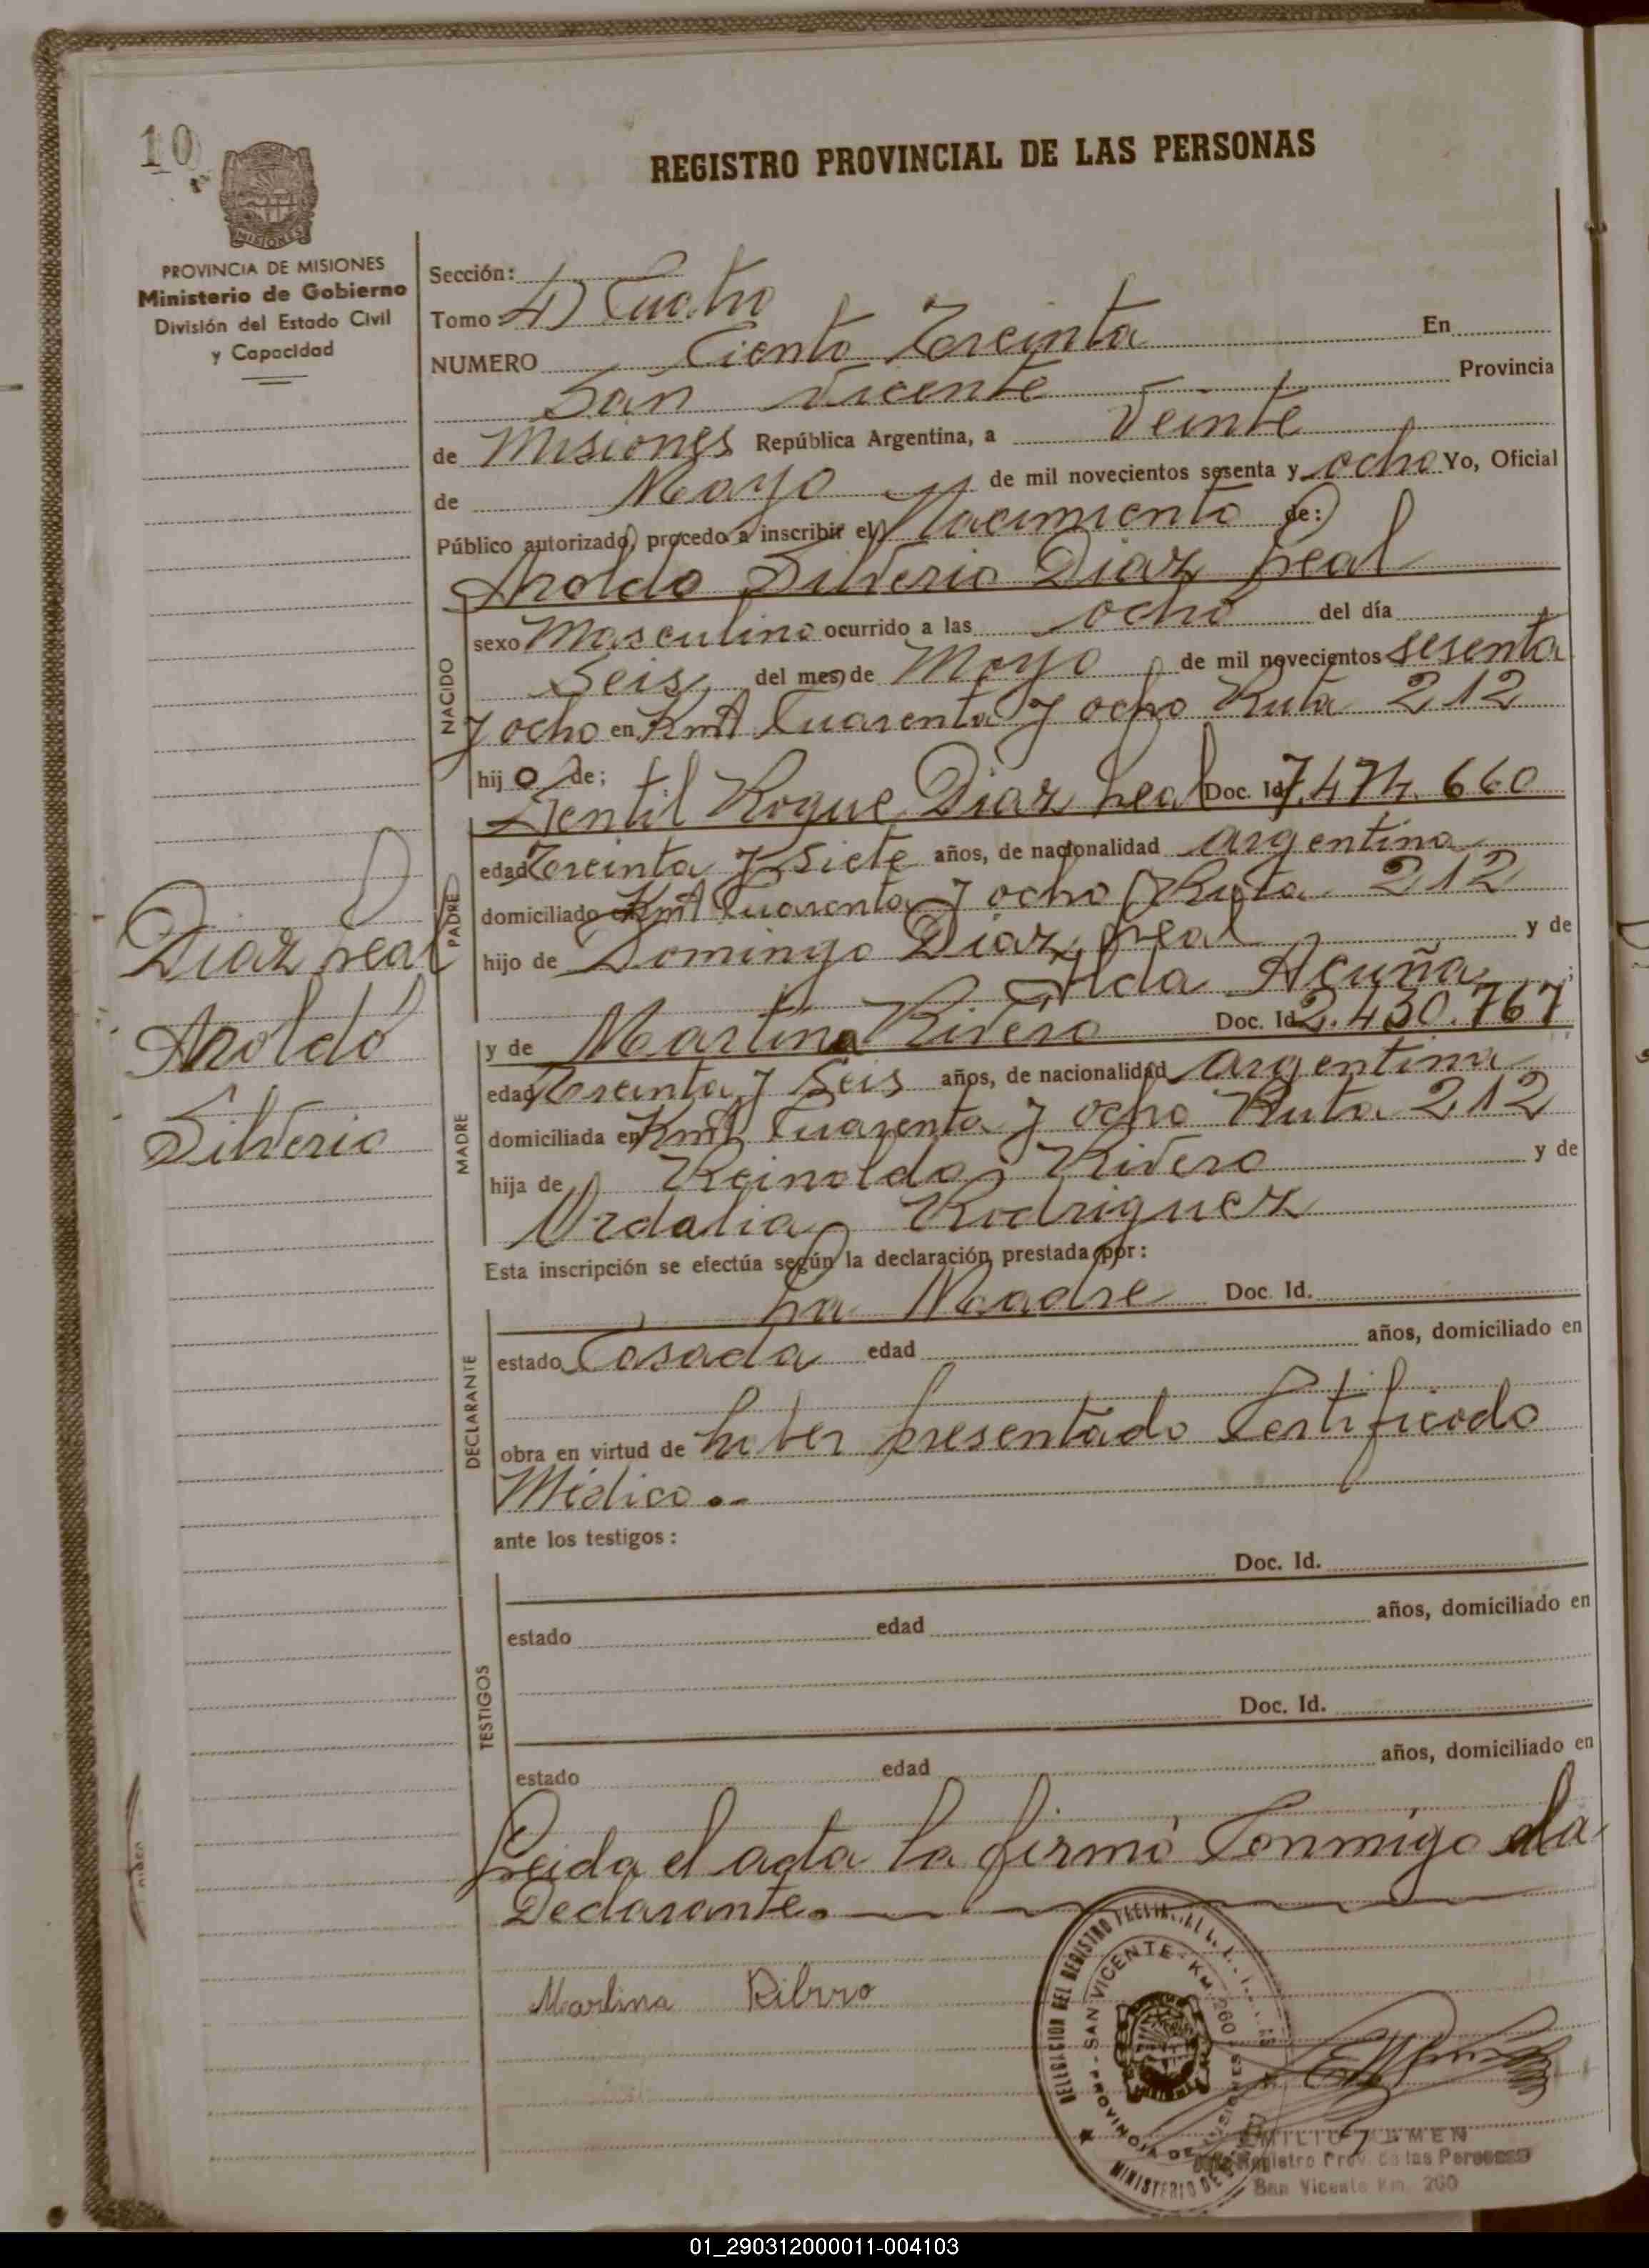 10
REGISTRO PROVINCIAL DE LAS PERSONAS
MISIONES
PROVINCIA DE MISIONES
Ministerio de Gobierno
División del Estado Civil
y Capacidad
Sección:
Tomo: 4) Cuatro
NUMERO Ciento Treinta En
San Vicente Provincia
de Misiones República Argentina, a Veinte
de Mayo de mil novecientos sesenta y ocho Yo, Oficial
Público autorizado, procedo a inscribir el Nacimiento de:
Aroldo Silverio Diaz Leal
NACIDO
sexo Masculino ocurrido a las ocho del día
Seis del mes de Mayo de mil novecientos sesenta
y ocho en Kmt Cuarenta y ocho Ruta 212
hijo de;
PADRE
Gentil Roque Diaz Leal Doc. Id 7.474.660
edad Treinta y Siete años, de nacionalidad argentina
domiciliado en Kmt Cuarenta y ocho Ruta 212
hijo de Domingo Diaz Leal y de
Ilda Acuña ;
MADRE
y de Martina Rivero Doc. Id 2.430.767
edad Treinta y Seis años, de nacionalidad argentina
domiciliada en Kmt Cuarenta y ocho Ruta 212
hija de Reinoldo Rivero y de
Ordalia Rodriguez
Diaz Leal
Aroldo
Silverio
Esta inscripción se efectúa según la declaración prestada por:
DECLARANTE
La Madre Doc. Id.
estado Casada edad años, domiciliado en
obra en virtud de haber presentado Certificado
Médico.-
ante los testigos:
TESTIGOS
Doc. Id.
estado edad años, domiciliado en
Doc. Id.
estado edad años, domiciliado en
Leida el acta la firmó Conmigo la
Declarante.
Martina Ribrro
DELEGACION DEL REGISTRO
SAN VICENTE - KM 260
PROVINCIA DE MISIONES
MINISTERIO DE
EMILIO
Registro Prov. de las Personas
San Vicente Km. 260
01_290312000011-004103